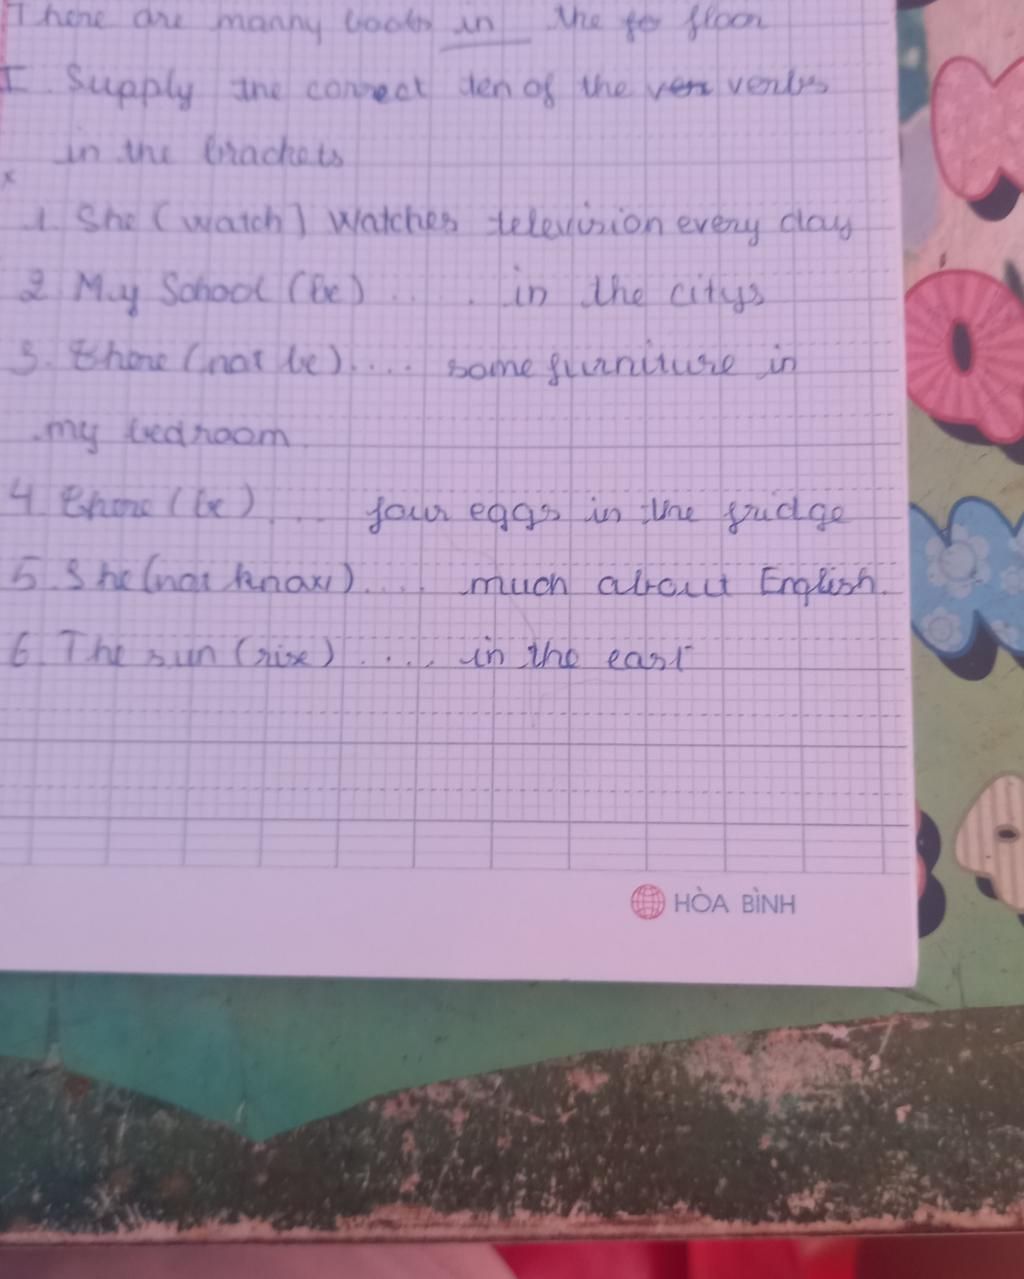 There are manny books in the fo floor
I. Supply the correct ten of the ver verbs
in the brackets
x
1. She (watch) watches television every day
2 My School (be) ..... in the citys
3. there (not be).... some furniture in
my bedroom
4 there (be) .... four eggs in the fridge
5. She (not know).... much about English.
6. The sun (rise) .... in the east
HÒA BÌNH